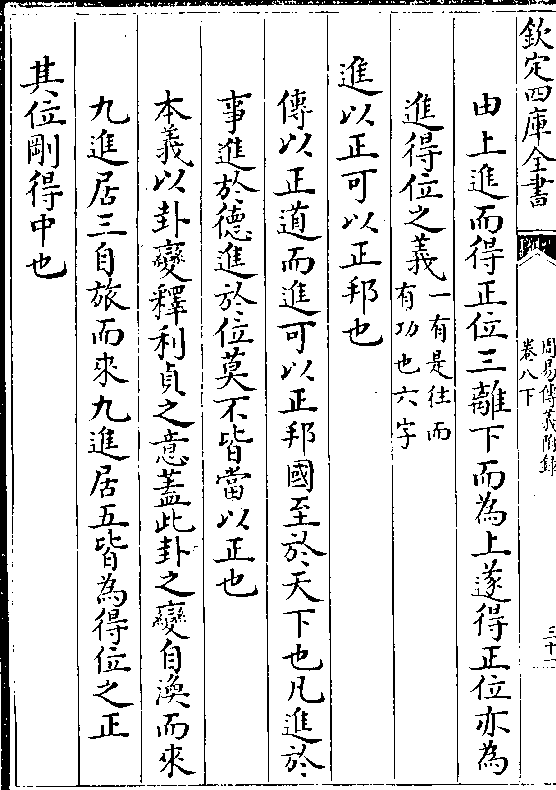 欽定四庫全書
周易傳義附錄
卷八下
三十一
由上進而得正位三離下而為上遂得正位亦為
進得位之義一有是往而
有功也六字
進以正可以正邦也
傳以正道而進可以正邦國至於天下也凡進於
事進於德進於位莫不皆當以正也
本義以卦變釋利貞之意蓋此卦之變自渙而來
九進居三自旅而來九進居五皆為得位之正
其位剛得中也